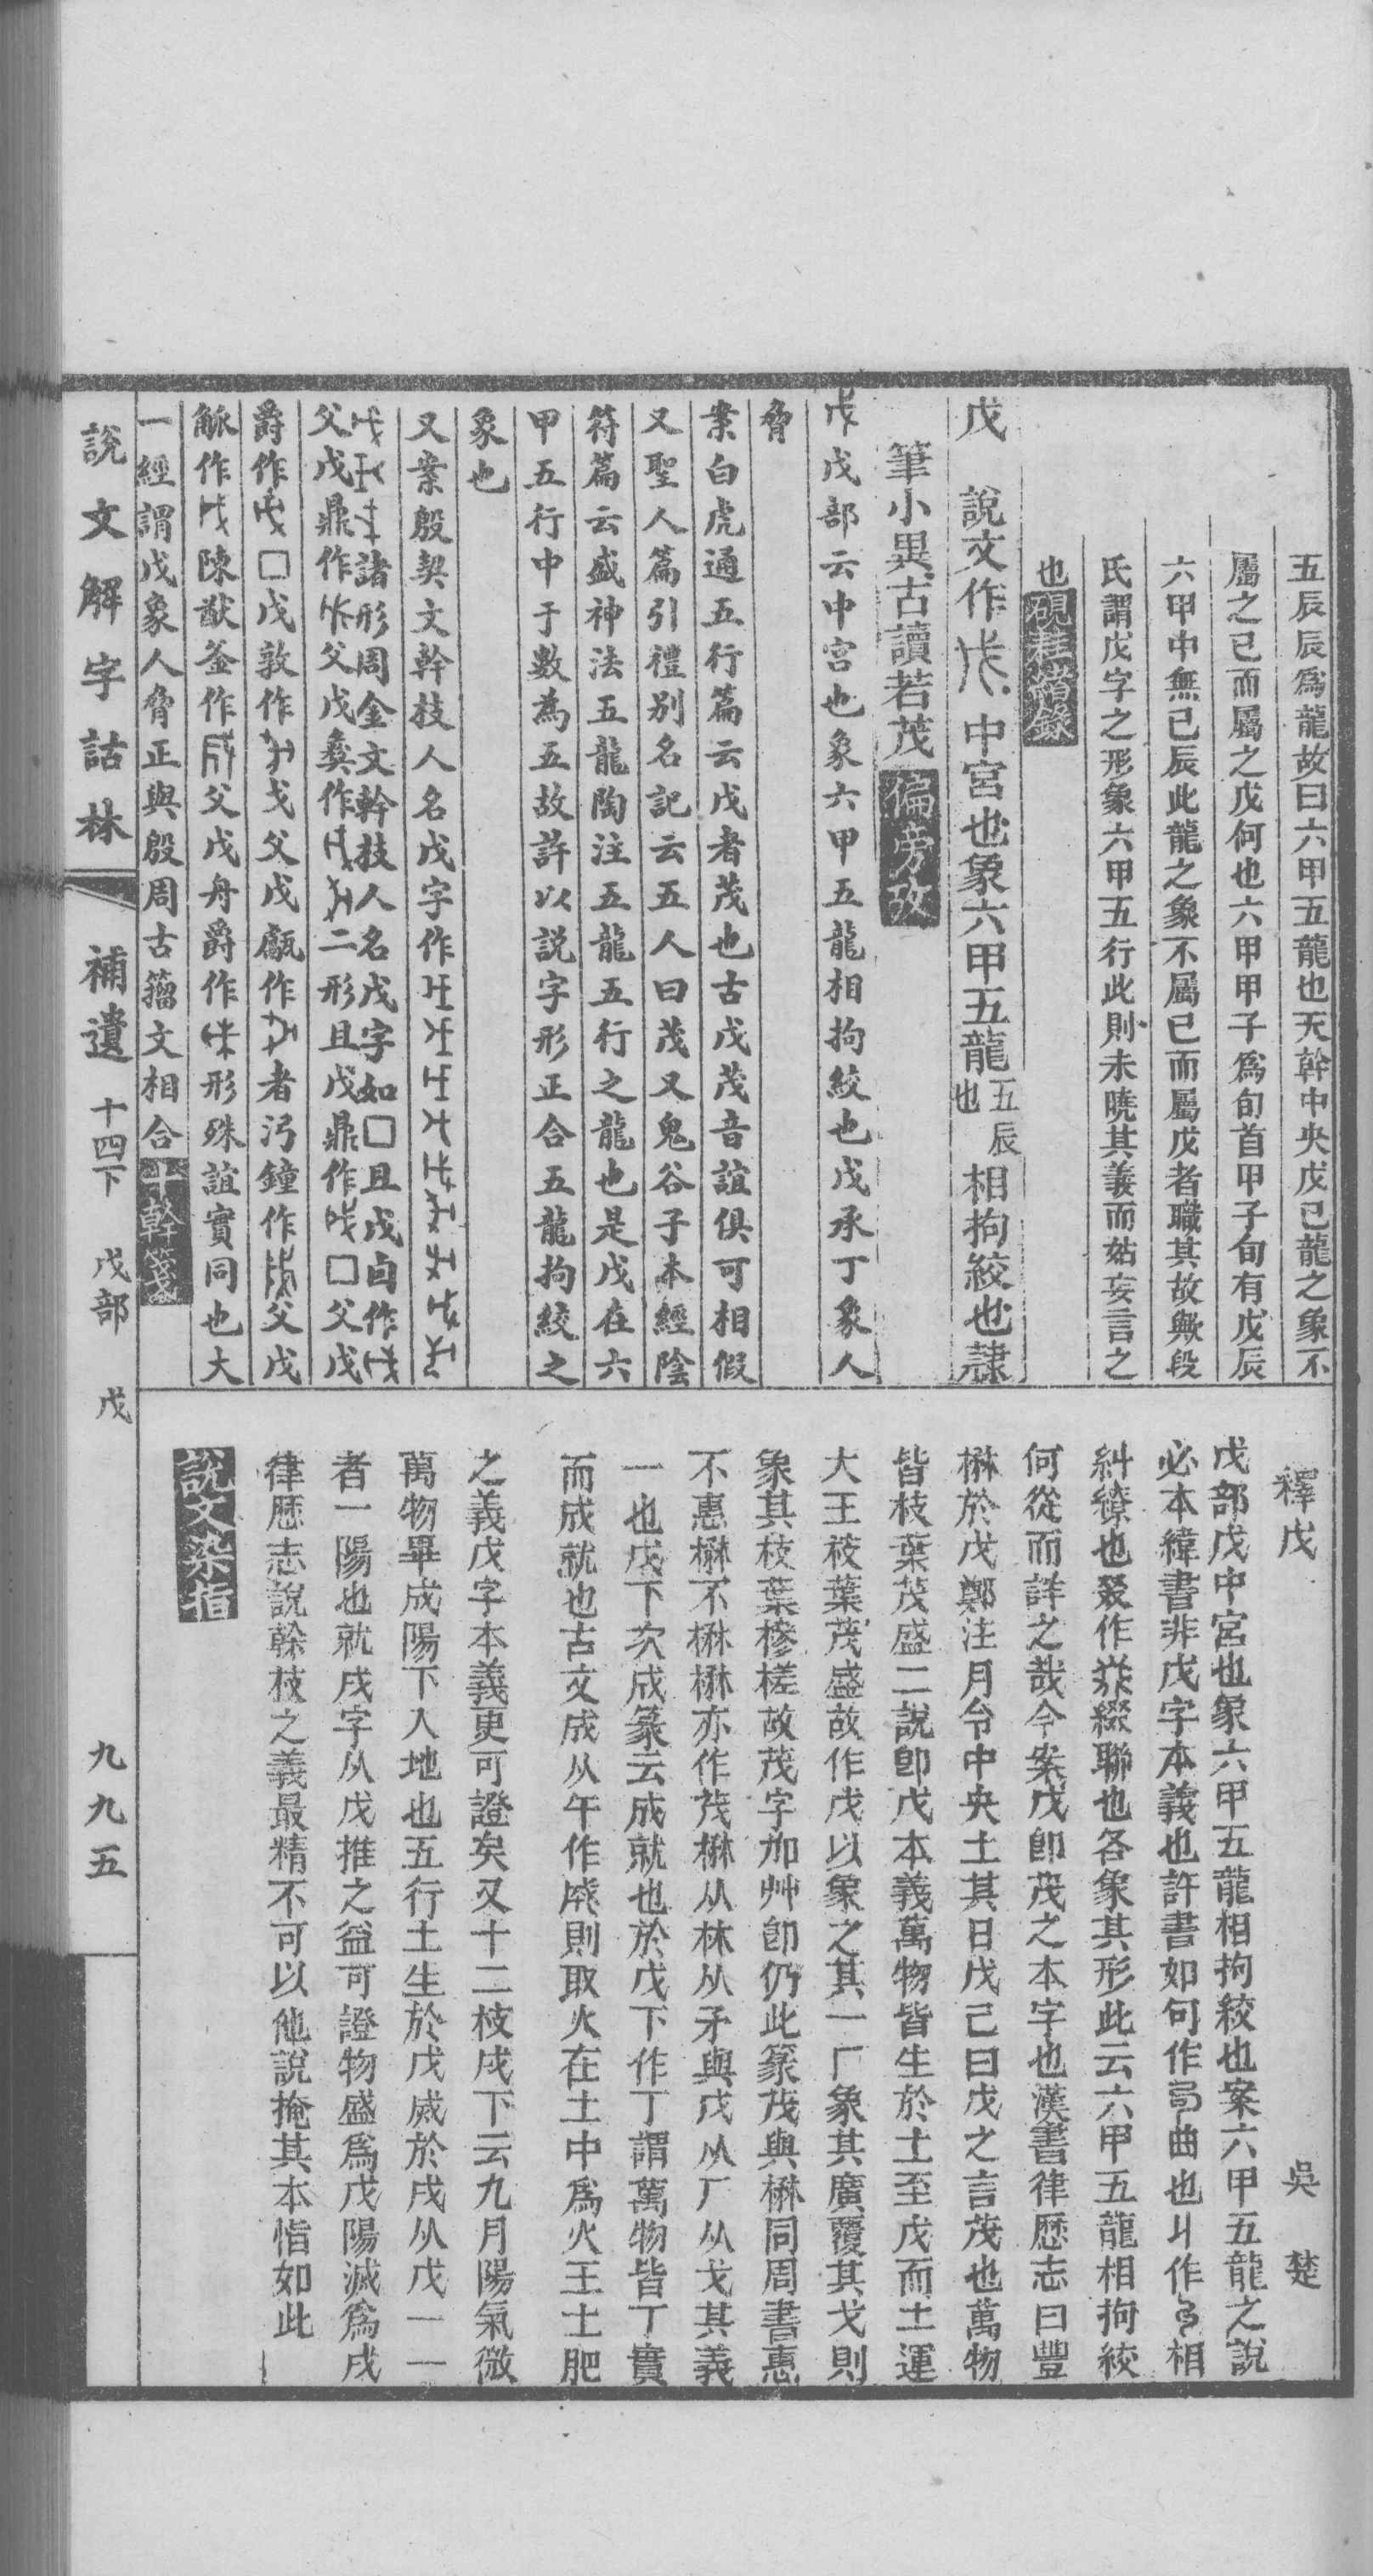 五辰辰爲龍故曰六甲五龍也天幹中央戊己龍之象不
屬之己而屬之戊何也六甲甲子爲旬首甲子旬有戊辰
六甲中無己辰此龍之象不屬己而屬戊者職其故歟段
氏謂戊字之形象六甲五行此則未曉其義而姑妄言之
也
戊　說文作　中宮也象六甲五龍五辰也相拘絞也隷
筆小異古讀若茂　偏旁攷
戊部云中宮也象六甲五龍相拘絞也戊承丁象人
脅
案白虎通五行篇云戊者茂也古戊茂音誼俱可相假
又聖人篇引禮别名記云五人曰茂又鬼谷子本經陰
符篇云盛神法五龍陶注五龍五行之龍也是戊在六
甲五行中于數為五故許以説字形正合五龍拘絞之
象也
又案殷契文幹枝人名戊字作
諸形周金文幹枝人名戊字如□且戊卣作
父戊鼎作　父戊彝作　二形且戊鼎作　□父戊
爵作　□戊敦作　戈父戊甗作　者沪鐘作　父戊
觚作　陳猷釜作　父戊舟爵作　形殊誼實同也大
一經謂戊象人脅正與殷周古籀文相合　十幹箋
釋戊　吳楚
戊部戊中宮也象六甲五龍相拘絞也案六甲五龍之說
必本緯書非戊字本義也許書如句作　曲也丩作　相
糾繚也叕作　綴聯也各象其形此云六甲五龍相拘絞
何從而詳之哉今案戊卽茂之本字也漢書律歷志曰豐
楙於戊鄭注月令中央土其日戊己曰戊之言茂也萬物
皆枝葉茂盛二說卽戊本義萬物皆生於土至戊而土運
大王枝葉茂盛故作戊以象之其一厂象其廣覆其戈則
象其枝葉槮槎故茂字加艸卽仍此篆茂與楙同周書惠
不惠楙不楙楙亦作茂楙从林从矛與戊从厂从戈其義
一也戊下次成篆云成就也於戊下作丁謂萬物皆丁實
而成就也古文成从午作　則取火在土中爲火王土肥
之義戊字本義更可證矣又十二枝戌下云九月陽氣微
萬物畢成陽下入地也五行土生於戊烕於戌从戊一一
者一陽也就戌字从戊推之益可證物盛爲戊陽滅爲戌
律歷志說榦枝之義最精不可以他說掩其本恉如此
說文染指
說文解字詁林　補遺　十四下　戊部　戊　九九五